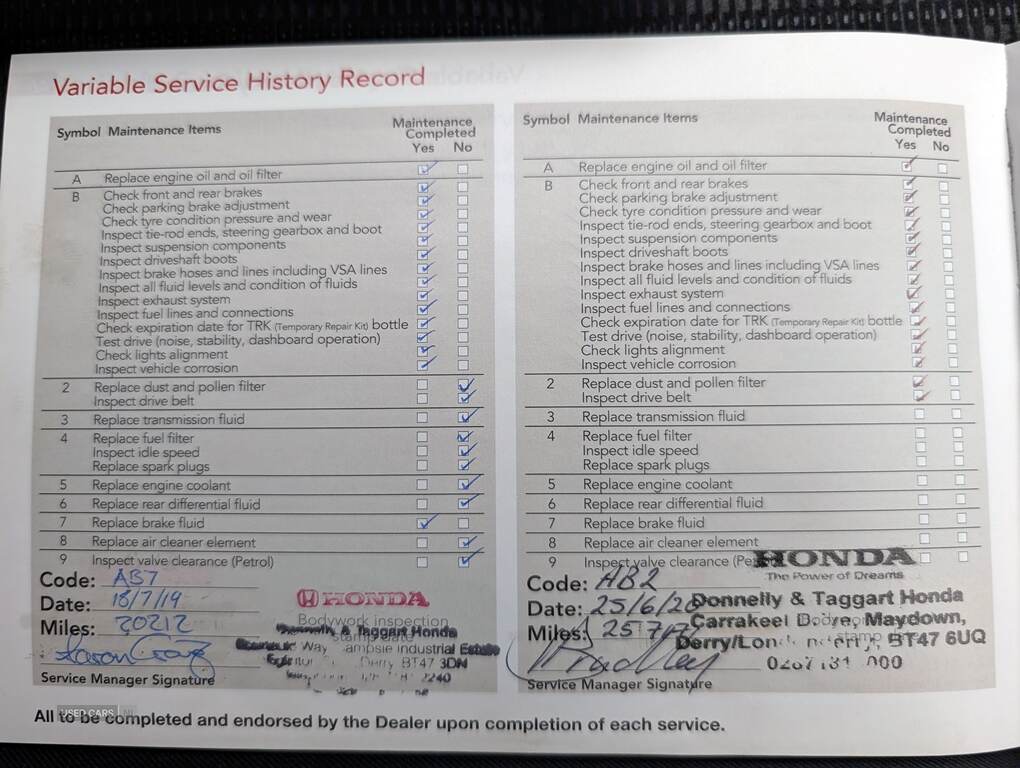 Variable Service History Record
Symbol Maintenance Items Maintenance Completed
Yes No
A Replace engine oil and oil filter
B Check front and rear brakes
Check parking brake adjustment
Check tyre condition pressure and wear
Inspect tie-rod ends, steering gearbox and boot
Inspect suspension components
Inspect driveshaft boots
Inspect brake hoses and lines including VSA lines
Inspect all fluid levels and condition of fluids
Inspect exhaust system
Inspect fuel lines and connections
Check expiration date for TRK (Temporary Repair Kit) bottle
Test drive (noise, stability, dashboard operation)
Check lights alignment
Inspect vehicle corrosion
2 Replace dust and pollen filter
Inspect drive belt
3 Replace transmission fluid
4 Replace fuel filter
Inspect idle speed
Replace spark plugs
5 Replace engine coolant
6 Replace rear differential fluid
7 Replace brake fluid
8 Replace air cleaner element
9 Inspect valve clearance (Petrol)
Code: AB7
Date: 18/7/19
Miles: 20212
HONDA
Bodywork inspection
& Taggart Honda
Way Industrial Estate
Derry BT47 3DN
2240
Service Manager Signature
Symbol Maintenance Items Maintenance Completed
Yes No
A Replace engine oil and oil filter
B Check front and rear brakes
Check parking brake adjustment
Check tyre condition pressure and wear
Inspect tie-rod ends, steering gearbox and boot
Inspect suspension components
Inspect driveshaft boots
Inspect brake hoses and lines including VSA lines
Inspect all fluid levels and condition of fluids
Inspect exhaust system
Inspect fuel lines and connections
Check expiration date for TRK (Temporary Repair Kit) bottle
Test drive (noise, stability, dashboard operation)
Check lights alignment
Inspect vehicle corrosion
2 Replace dust and pollen filter
Inspect drive belt
3 Replace transmission fluid
4 Replace fuel filter
Inspect idle speed
Replace spark plugs
5 Replace engine coolant
6 Replace rear differential fluid
7 Replace brake fluid
8 Replace air cleaner element
9 Inspect valve clearance
Code: AB2
Date: 25/6/20
Miles:
HONDA
The Power of Dreams
Donnelly & Taggart Honda
Carrakeel Drive, Maydown,
BT47 6UQ
Bradley
Service Manager Signature
All to be completed and endorsed by the Dealer upon completion of each service.
USED CARS NI